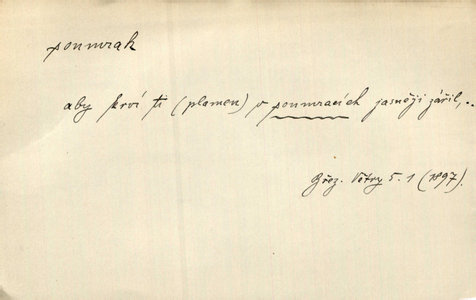 poumrak
aby krví ti (plamen) v poumracích jasněji zářil,..
Břez. Větry 5.1 (1897).